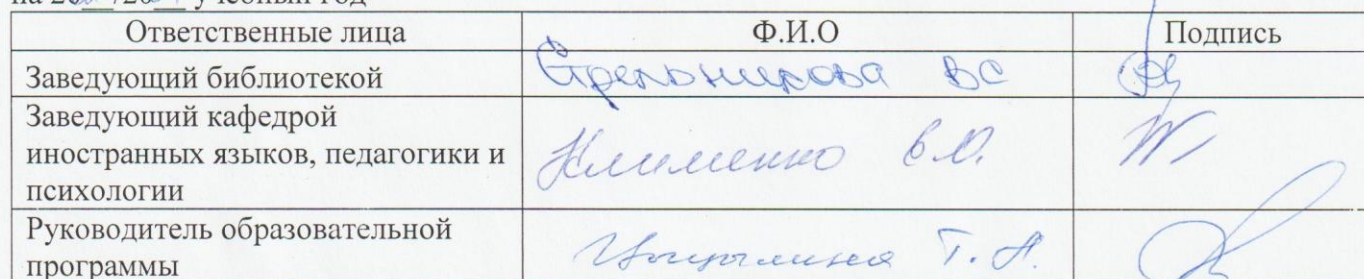 учебный год
Ответственные лица Ф.И.О Подпись
Заведующий библиотекой Стрельникова ВС
Заведующий кафедрой
иностранных языков, педагогики и
психологии Клименко
Руководитель образовательной
программы Т.